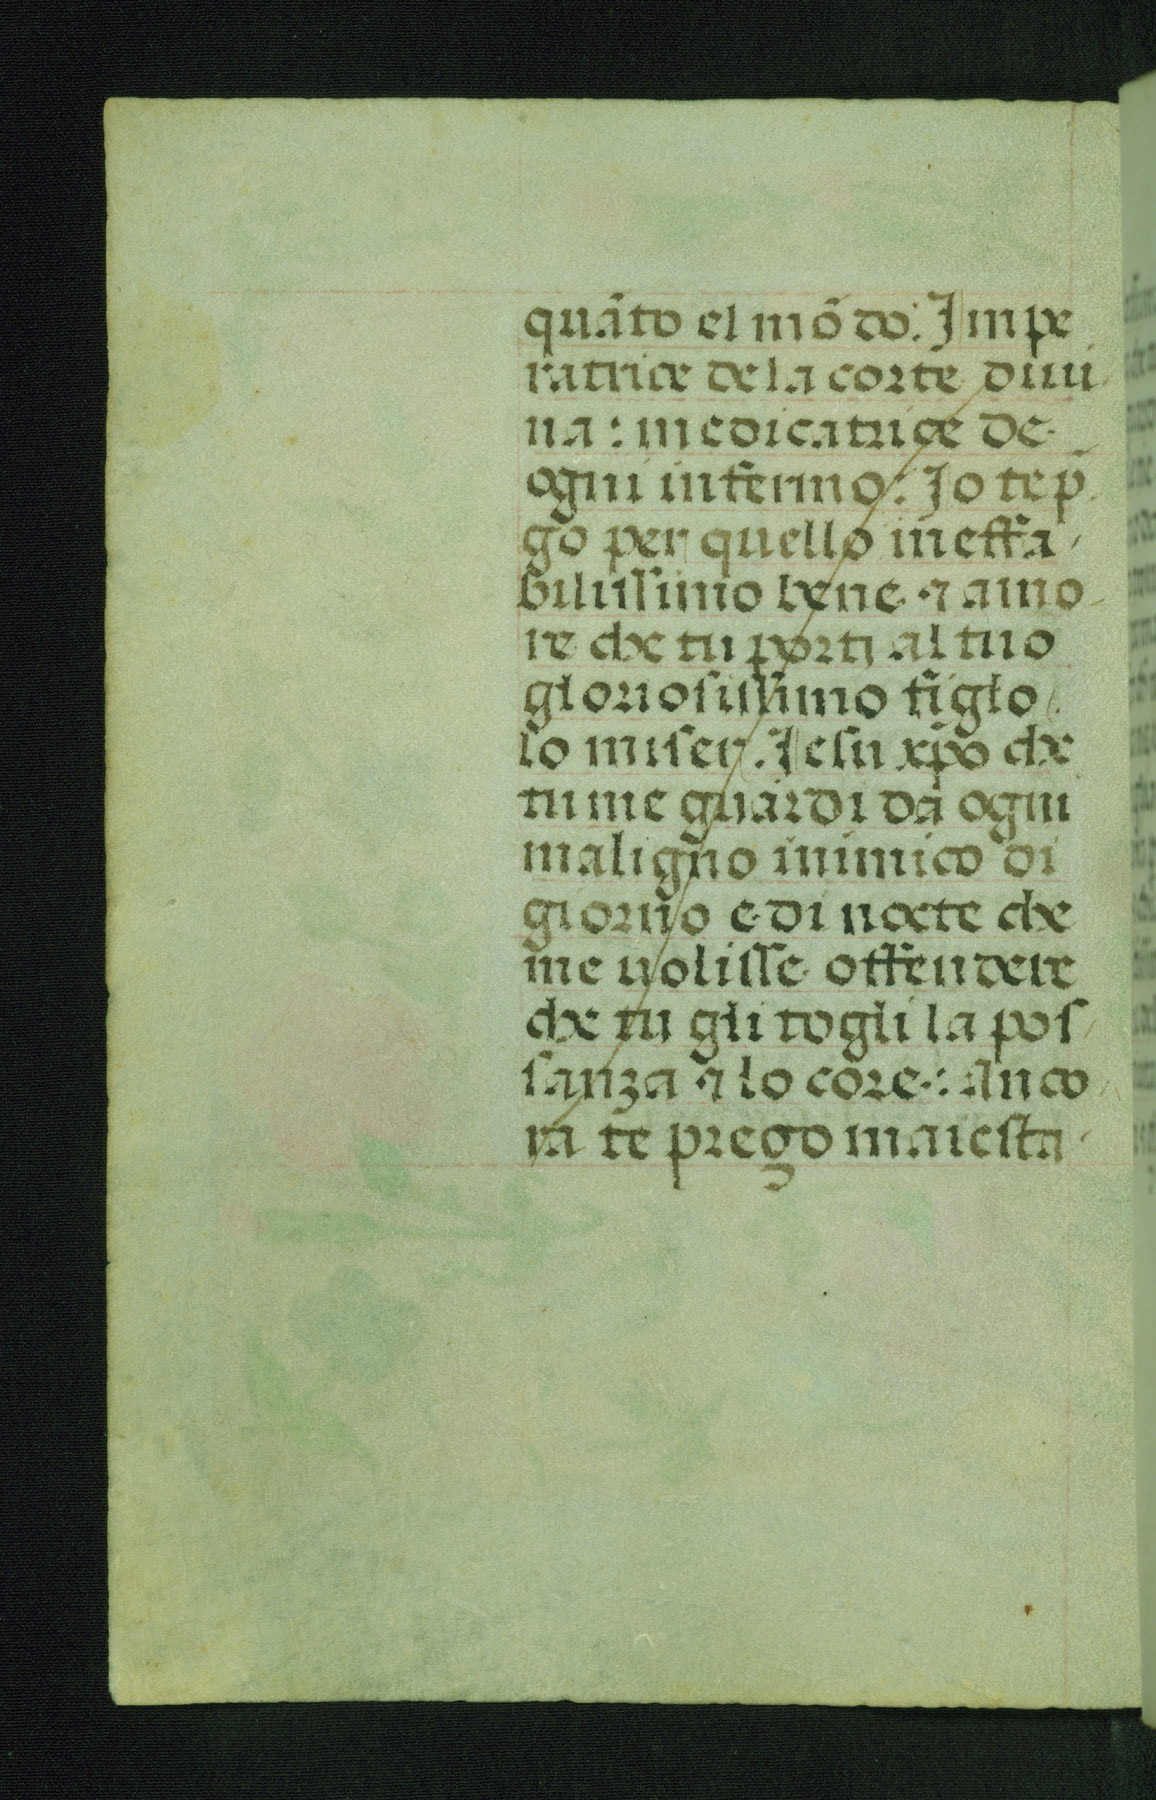 quãto el mõdo. Impe
ratrice de la corte diui
na: medicatrice de
ogni infermo: Io te p̃
go per quello ineffa
bilissimo bene ⁊ amo
re che tu porti al tuo
gloriosissimo figlo
lo miser. Iesu xp̃o che
tu me guardi da ogni
maligno inimico di
giorno e di nocte che
me uolisse offendere
che tu gli togli la pos
sanza ⁊ lo core: Anco
ra te prego maiesta